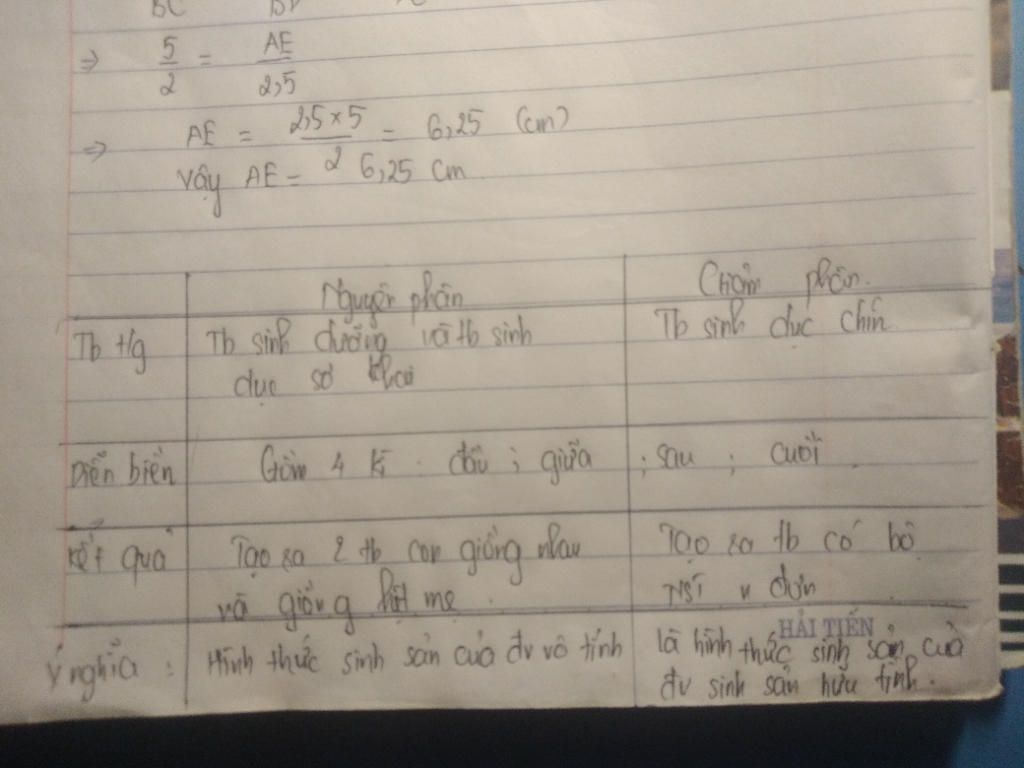 ⇒ 5/2 = AE/2,5
⇒ AE = 2,5 × 5/2 = 6,25 (cm)
Vậy AE = 6,25 cm
Nguyên phân
Giảm phân.
Tb t/g
Tb sinh dưỡng và tb sinh
dục sơ khai
Tb sinh dục chín
Diễn biến
Gồm 4 kì : đầu ; giữa ; sau ; cuối.
Kết quả
Tạo ra 2 tb con giống nhau
và giống hệt mẹ.
Tạo ra tb có bộ
NST n đơn
HẢI TIẾN
Ý nghĩa :
Hình thức sinh sản của đv vô tính
là hình thức sinh sản của
đv sinh sản hữu tính.